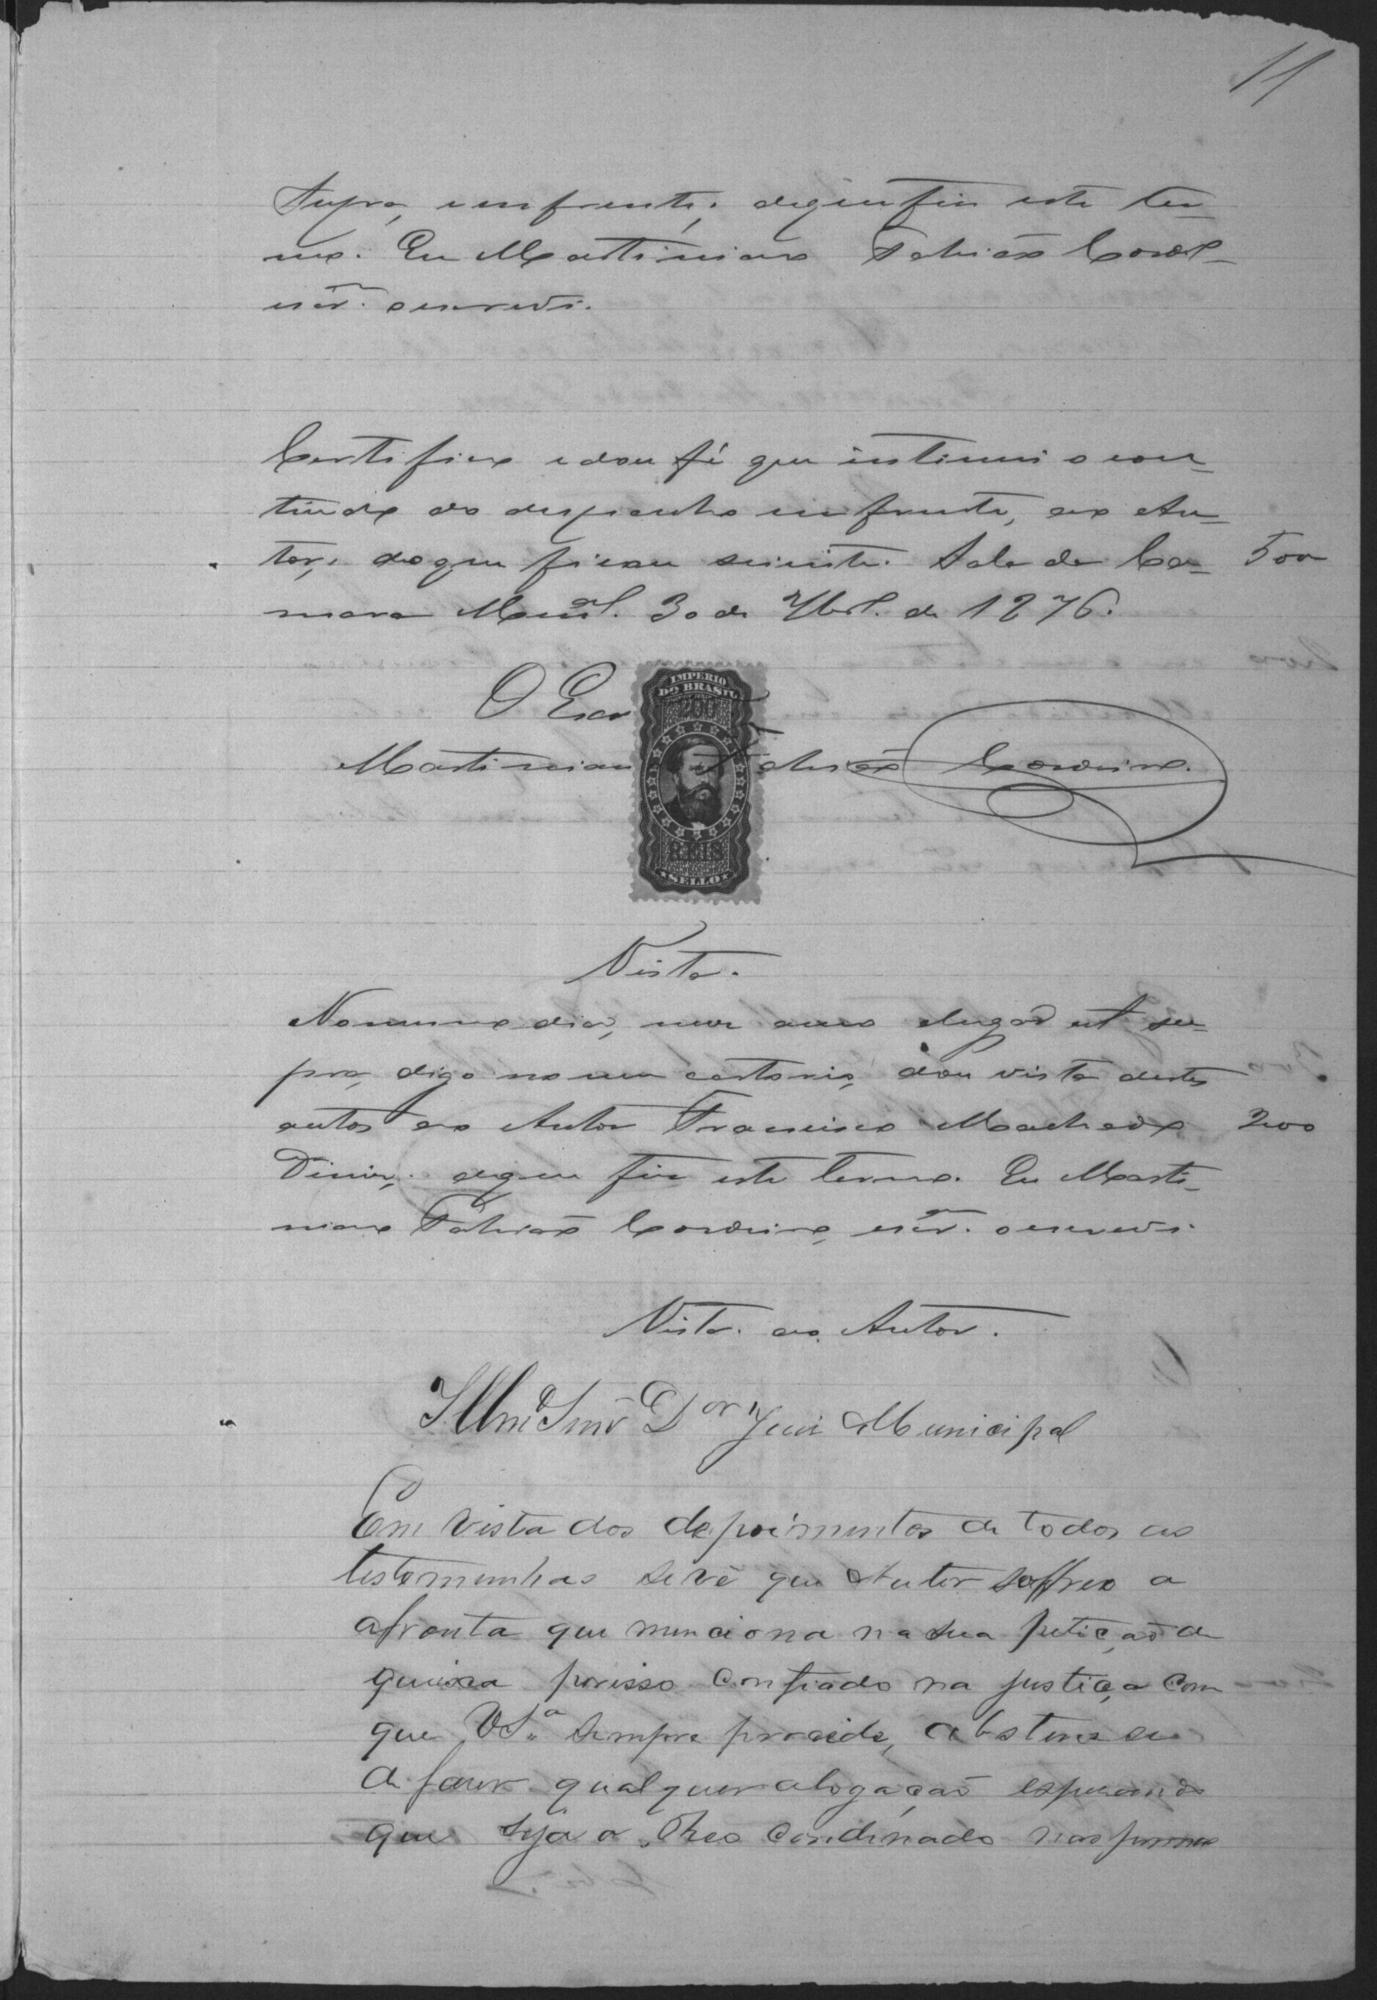 11
Supra, em frente, de que fiz este ter-
mo. Eu Martiniano Fabião Cord.
escr.m o escrevi.
Certifico e dou fé que intimei o con-
tiudo do despacho em frente, ao Au-
tor, do que ficou sciente. Sala da Ca- 500
mara Mun.al 30 de 7br.o de 1876.
O Escr
Martiniano Fabião Cordeiro.
IMPERIO
DO BRASIL
200
REIS
SELLO
Vista.
No mesmo dia, mez anno e lugar ut su-
pra, digo no meu cartorio, dou vista destes
autos ao Autor Francisco Machado 200
Diniz, de que fiz este termo. Eu Marti-
niano Fabião Cordeiro, escr.m o escrevi.
Vista ao Autor.
Illm.o Snr. Dor Juiz Municipal
Em vista dos depoimentos de todos as
testemunhas se vê que Autor soffreo a
afronta que menciona na sua petição de
queixa porisso confiado na justiça com
que V.S.a sempre procede, abstense
de fazer qualquer alegação esperando
que seja o Reo condenado nas